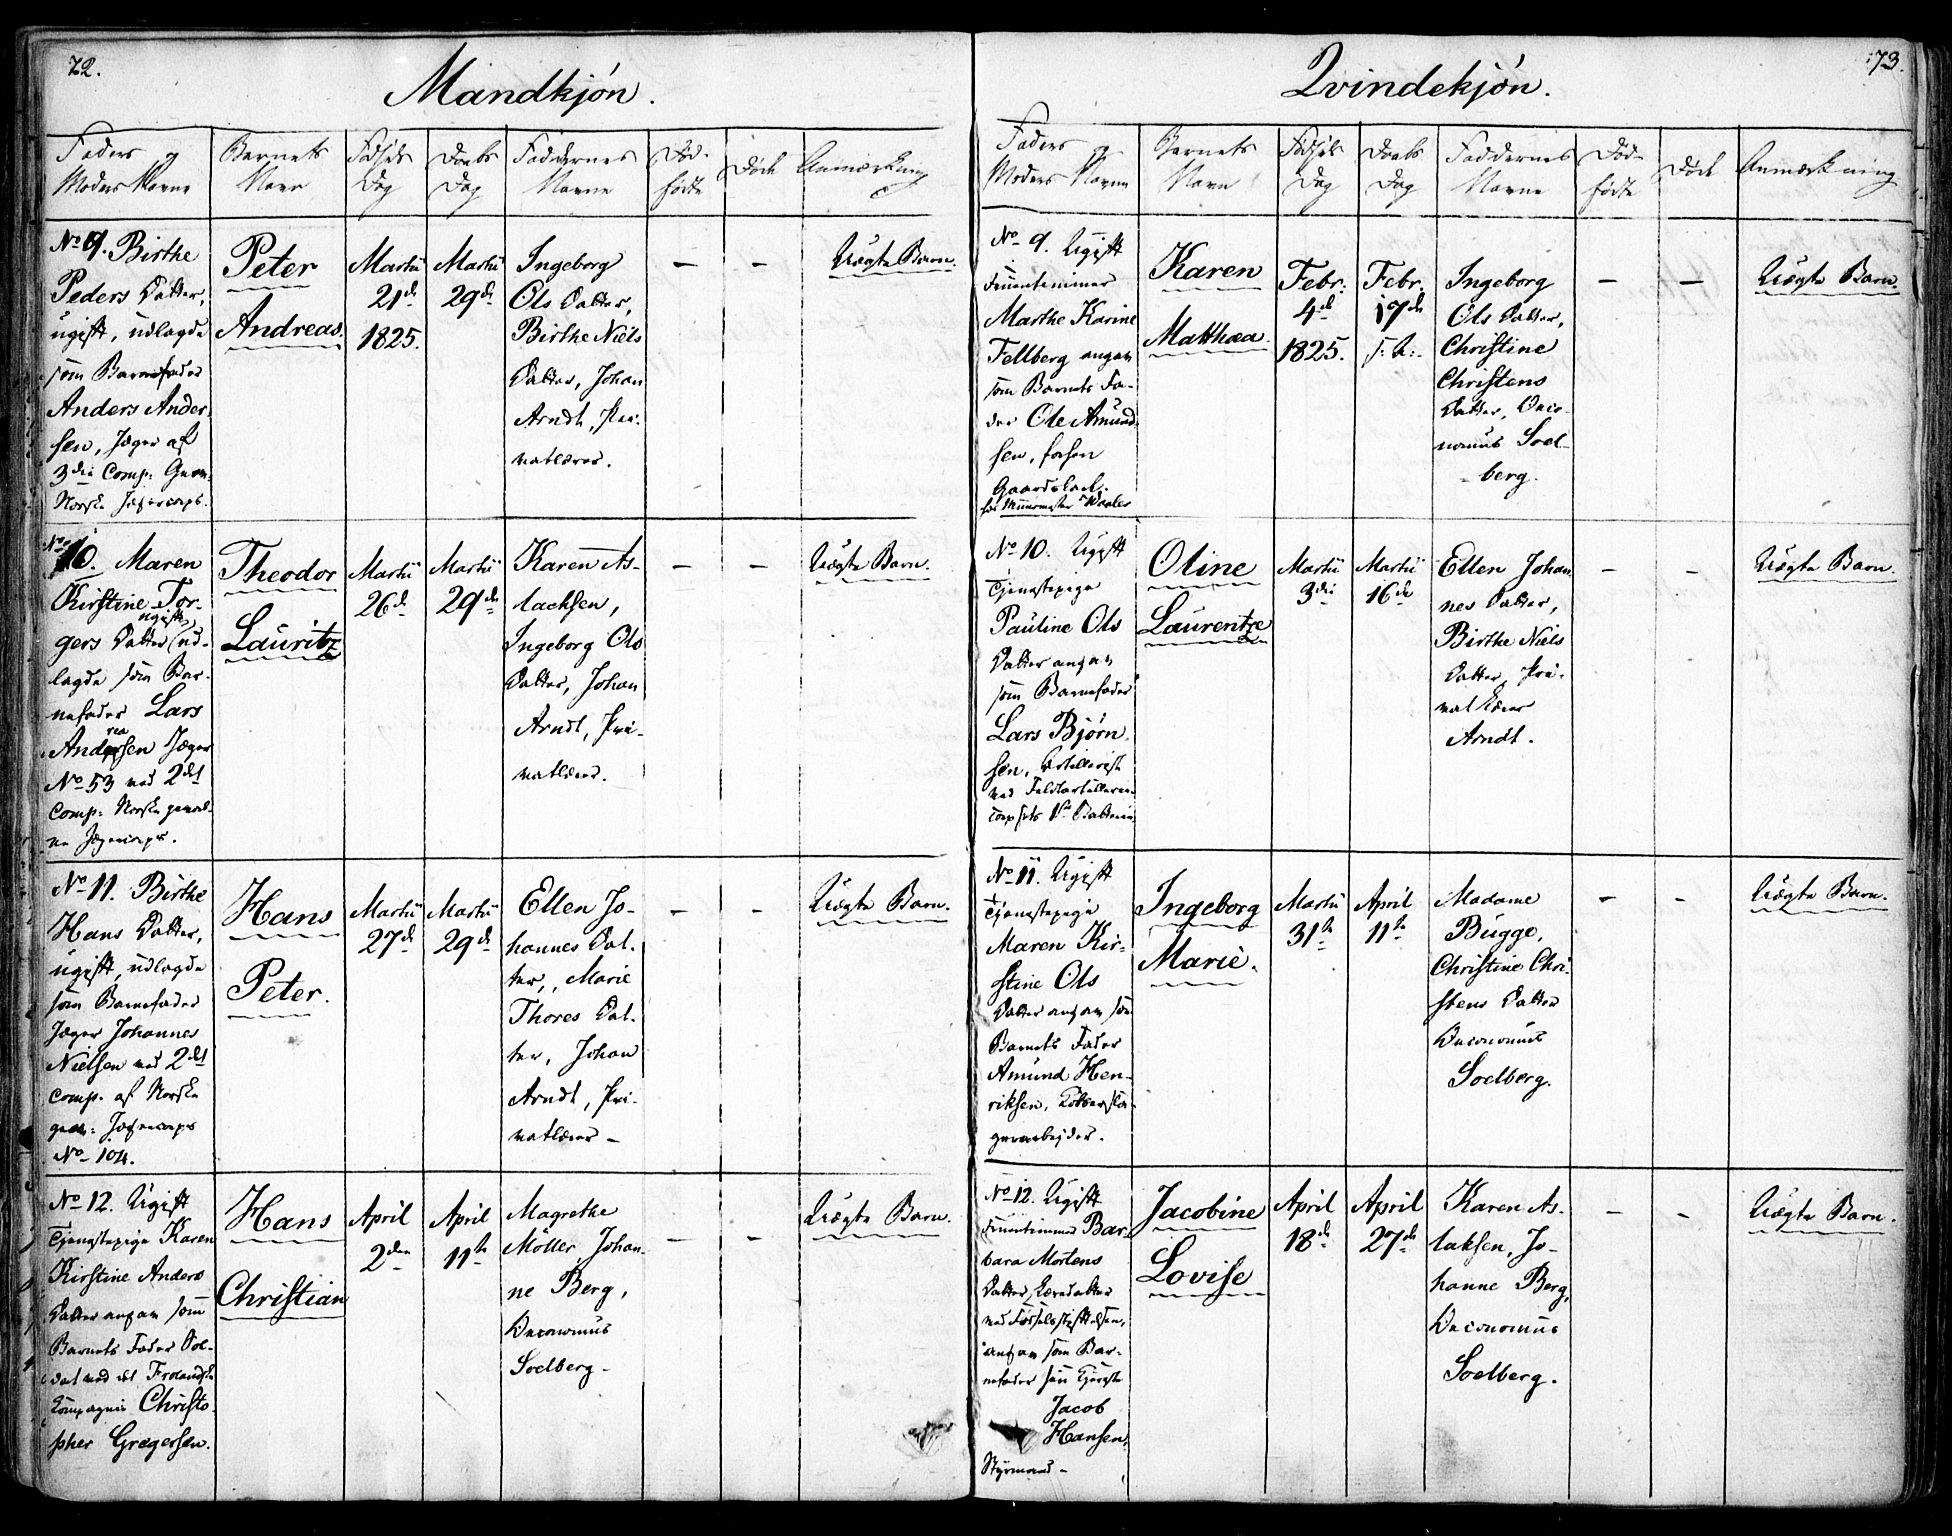 72.
Mandkjön.
Faders og
Moders Navne
Barnets
Navn
Fødsels
Dag
Daabs
Dag
Faddernes
Navne
Død-
fødte
Døde
Anmærkning
No 9. Birthe
Peders Datter,
ugift, udlagde
som Barnefader
Anders Ander-
sen, Jæger af
3die Comp:
Norske Jægercorps.
Peter
Andreas.
Martii
21de
1825.
Martii
29de
Ingeborg
Ols Datter,
Birthe Niels
Datter, Johan
Arndt, Pri-
vatlærer.
— —
Uægte Barn.
No 10. Maren
Kirstine Tor-
gers Datter (ugift) ud-
lagde som Bar-
nefader Lars
Andreasen Jæger
No 53 ved 2det
Comp: Norske geval-
ne Jægercorps.
Theodor
Lauritz
Martii
26de
Martii
29de
Karen As-
lachsen,
Ingeborg Ols
Datter, Johan
Arndt, Pri-
vatlærer.
— —
Uægte Barn.
No 11. Birthe
Hans Datter,
ugift, udlagde
som Barnefader
Jæger Johannes
Nielsen ved 2det
Comp. af Norske
gev: Jægercorps
No 104.
Hans
Peter.
Martii
27de
Martii
29de
Ellen Jo-
hannes Dat-
ter, Marie
Thores Dat-
ter, Johan
Arndt, Pri-
vatlærer —
— —
Uægte Barn.
No 12. Ugift
Tjenestepige Karen
Kirstine Anders
Datter angav som
Barnets Fader Sol-
dat ved det Frolandske
Compagnie Christo-
pher Gregersen.
Hans
Christian
April
2den
April
11te
Magrethe
Möller, Johan-
ne Berg,
Oeconomus
Soelberg —
— —
Uægte Barn.
73.
Qvindekjön.
Faders og
Moders Navne
Barnets
Navn
Fødsels
Dag
Daabs
Dag
Faddernes
Navne
Død-
fødte
Døde
Anmærkning
No 9. Ugift
Fruentimmer
Marthe Karine
Fellberg angav
som Barnets Fa-
der Ole Amund-
sen, forhen
Gaardskarl
hos Muurmester Waaler
Karen
Matthæa.
Febr.
4de
1825.
Febr.
17de
s: A:
Ingeborg
Ols Datter,
Christine
Christens
Datter, Oeco-
nomus Soel-
berg.
— —
Uægte Barn.
No 10. Ugift
Tjenestepige
Pauline Ols
Datter angav
som Barnefader
Lars Björn-
sen, Artillerist
ved Feldtartillerie-
corpsets Batterie
Oline
Laurentze
Martii
3die
Martii
16de
Ellen Johan-
nes Datter,
Birthe Niels
Datter, Pri-
vatlærer
Arndt.
— —
Uægte Barn.
No 11. Ugift
Tjenestepige
Maren Kir-
stine Ols
Datter angav som
Barnets Fader
Amund Hen-
riksen, Kobbersla-
gerarbejder.
Ingeborg
Marie.
Martii
31te
April
11te
Madame
Bugge,
Christine Chri-
stens Datter
Oeconomus
Soelberg.
— —
Uægte Barn.
No 12. Ugift
Fruentimmer Bar-
bara Mortens
Datter, Læredatter
ved Fødselsstiftelsen,
angav som Bar-
nefader sin Kjæreste
Jacob
Hansen,
Styrmand —
Jacobine
Lovise
April
18de
April
27de
Karen As-
laksen, Jo-
hanne Berg,
Oeconomus
Soelberg.
— —
Uægte Barn.